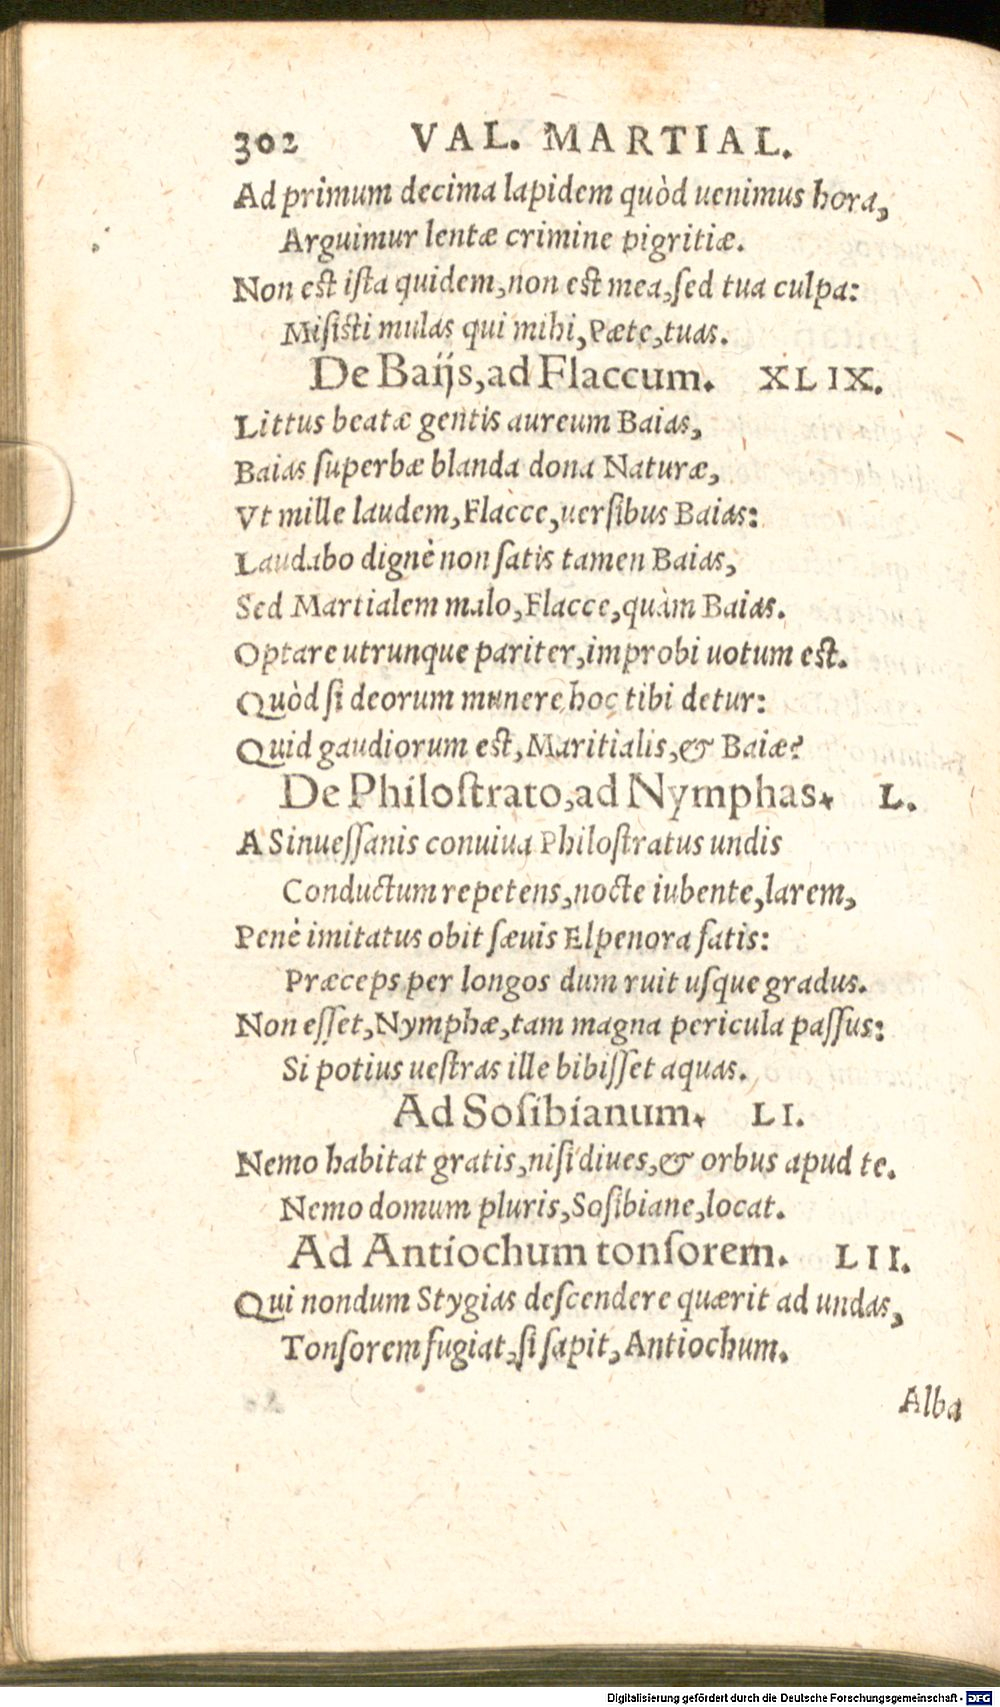 302 VAL. MARTIAL.
Ad primum decima lapidem quòd uenimus hora,
Arguimur lentæ crimine pigritiæ.
Non est ista quidem, non est mea, sed tua culpa:
Misisti mulas qui mihi, Pæte, tuas.
De Baijs, ad Flaccum. XLIX.
Littus beatæ gentis aureum Baias,
Baias superbæ blanda dona Naturæ,
Vt mille laudem, Flacce, uersibus Baias:
Laudabo dignè non satis tamen Baias,
Sed Martialem malo, Flacce, quàm Baias.
Optare utrunque pariter, improbi uotum est.
Quòd si deorum munere hoc tibi detur:
Quid gaudiorum est, Maritialis, & Baiæ?
De Philostrato, ad Nymphas. L.
A Sinuessanis conuiua Philostratus undis
Conductum repetens, nocte iubente, larem,
Penè imitatus obit sæuis Elpenora fatis:
Præceps per longos dum ruit usque gradus.
Non esset, Nymphæ, tam magna pericula passus:
Si potius uestras ille bibisset aquas.
Ad Sosibianum. LI.
Nemo habitat gratis, nisi diues, & orbus apud te.
Nemo domum pluris, Sosibiane, locat.
Ad Antiochum tonsorem. LII.
Qui nondum Stygias descendere quærit ad undas,
Tonsorem fugiat, si sapit, Antiochum.
Alba
Digitalisierung gefördert durch die Deutsche Forschungsgemeinschaft - DFG